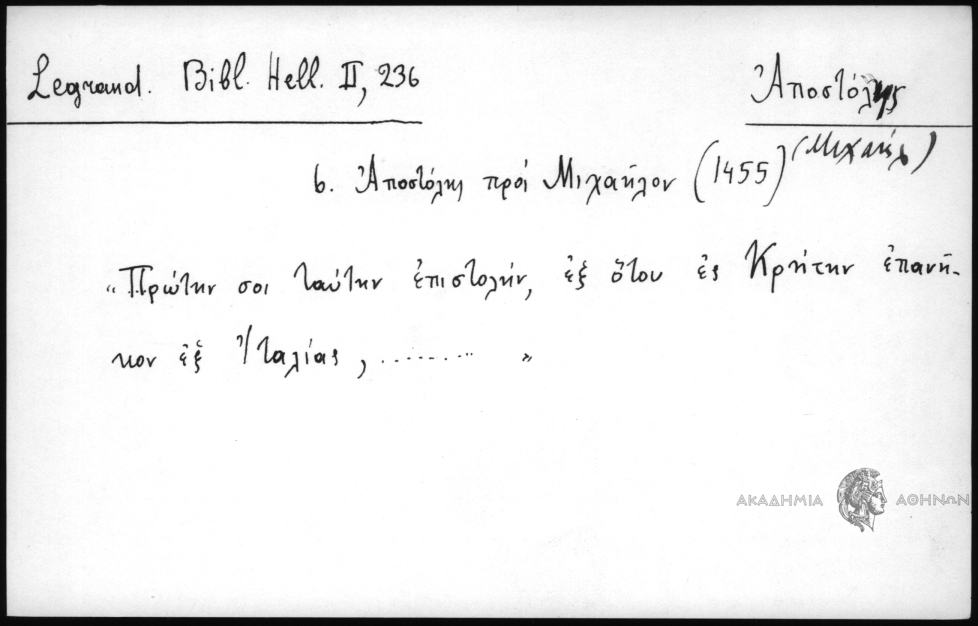 Legrand. Bibl. Hell. II, 236
Ἀποστόλης
(Μιχαήλ)
6. Ἀποστόλης πρὸς Μιχαῆλον (1455)
"Πρώτην σοι ταύτην ἐπιστολήν, ἐξ ὅτου ἐς Κρήτην ἐπανῆ-
κον ἐξ Ἰταλίας, .......... "
ΑΚΑΔΗΜΙΑ ΑΘΗΝΩΝ